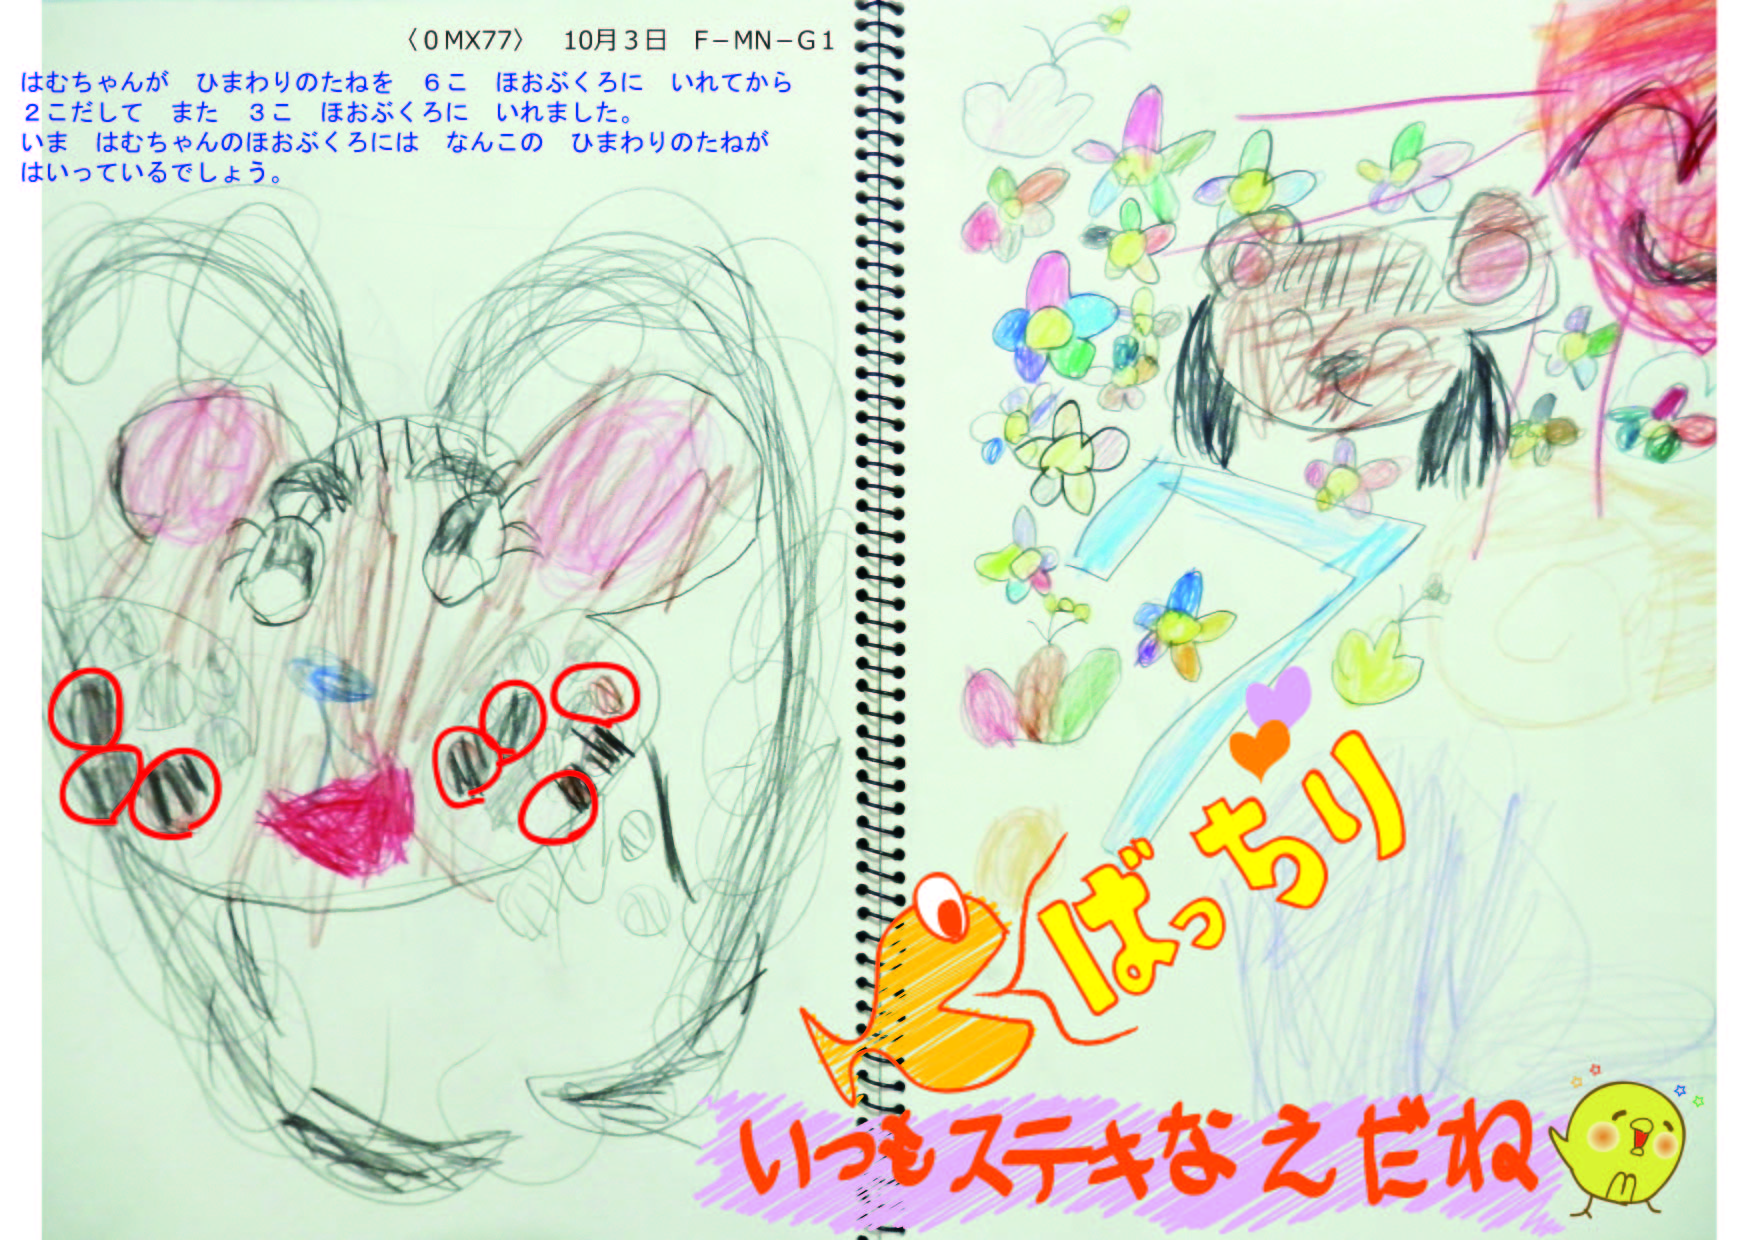 〈０MX77〉　10月３日　F－MN－G１
はむちゃんが　ひまわりのたねを　６こ　ほおぶくろに　いれてから
２こだして　また　３こ　ほおぶくろに　いれました。
いま　はむちゃんのほおぶくろには　なんこの　ひまわりのたねが
はいっているでしょう。
7
ばっちり
いつもステキなえだね